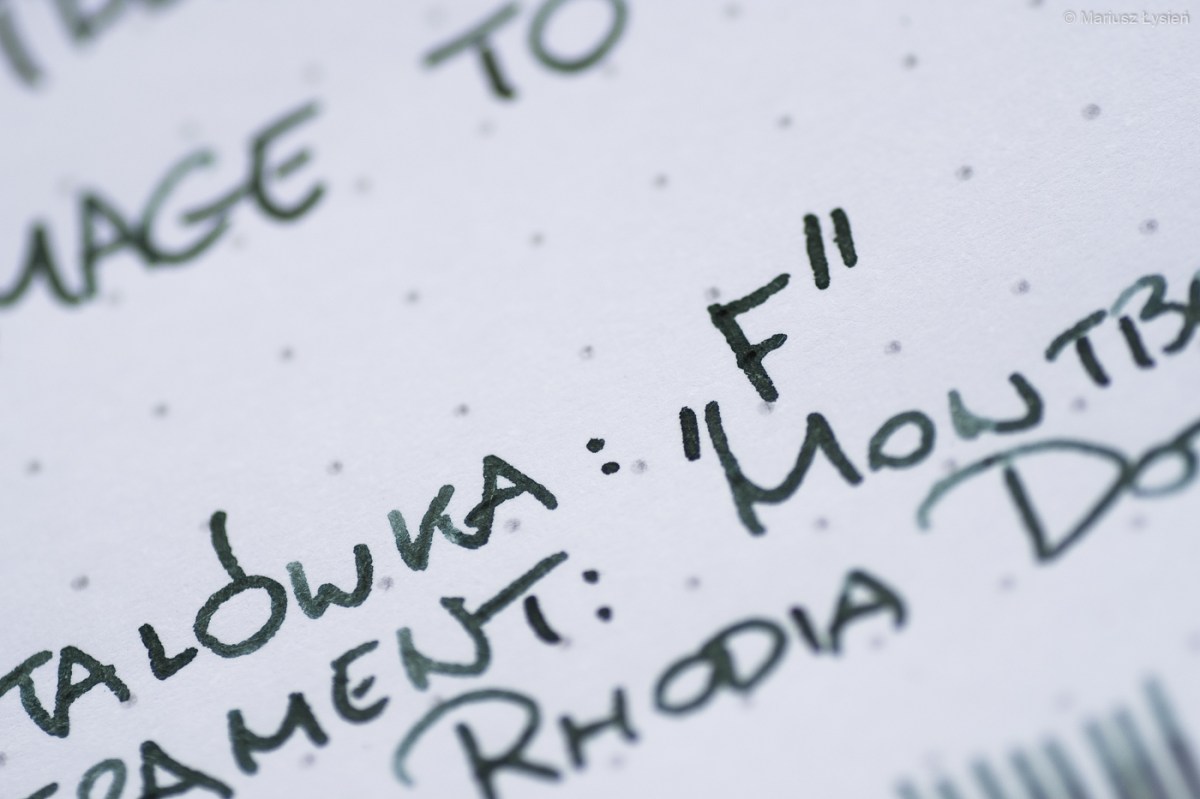 © Mariusz Łysień
MAGE TO
TALÓWKA : F"
RAMENT : "MONTB
RHODIA DO